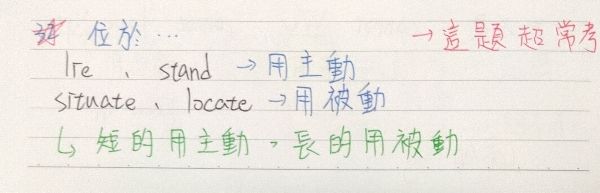 位於… → 這題超常考
lie、stand → 用主動
situate、locate → 用被動
↳ 短的用主動，長的用被動